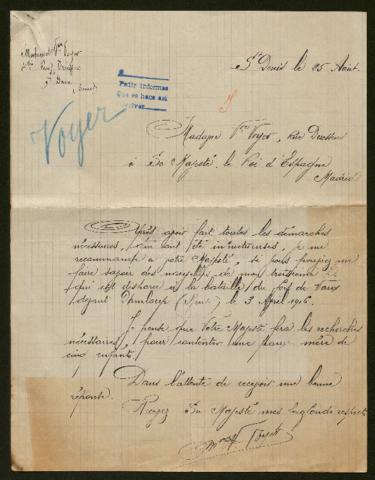 Madame Vve Voyer
St Denis
(Seine)
St Denis le 25 Août
Pedir informes
Que se hace así
Voyer
Madame Vve Voyer, née
à Sa Majesté le Roi d'Espagne
Madrid
Après avoir fait toutes les démarches
nécessaires, qui ont été infructueuses, je me
recommande à votre Majesté, si vous pouviez me
faire savoir des nouvelles de mon troisième fils
qui est disparu à la bataille du fort de Vaux
devant Damloup (Meuse) le 3 Avril 1916.
Je pense que Votre Majesté fera les recherches
nécessaires, pour contenter une pauvre mère de
cinq enfants.
Dans l'attente de recevoir une bonne
réponse.
Recevez Sa Majesté mes profonds respects
Mme Vve Voyer